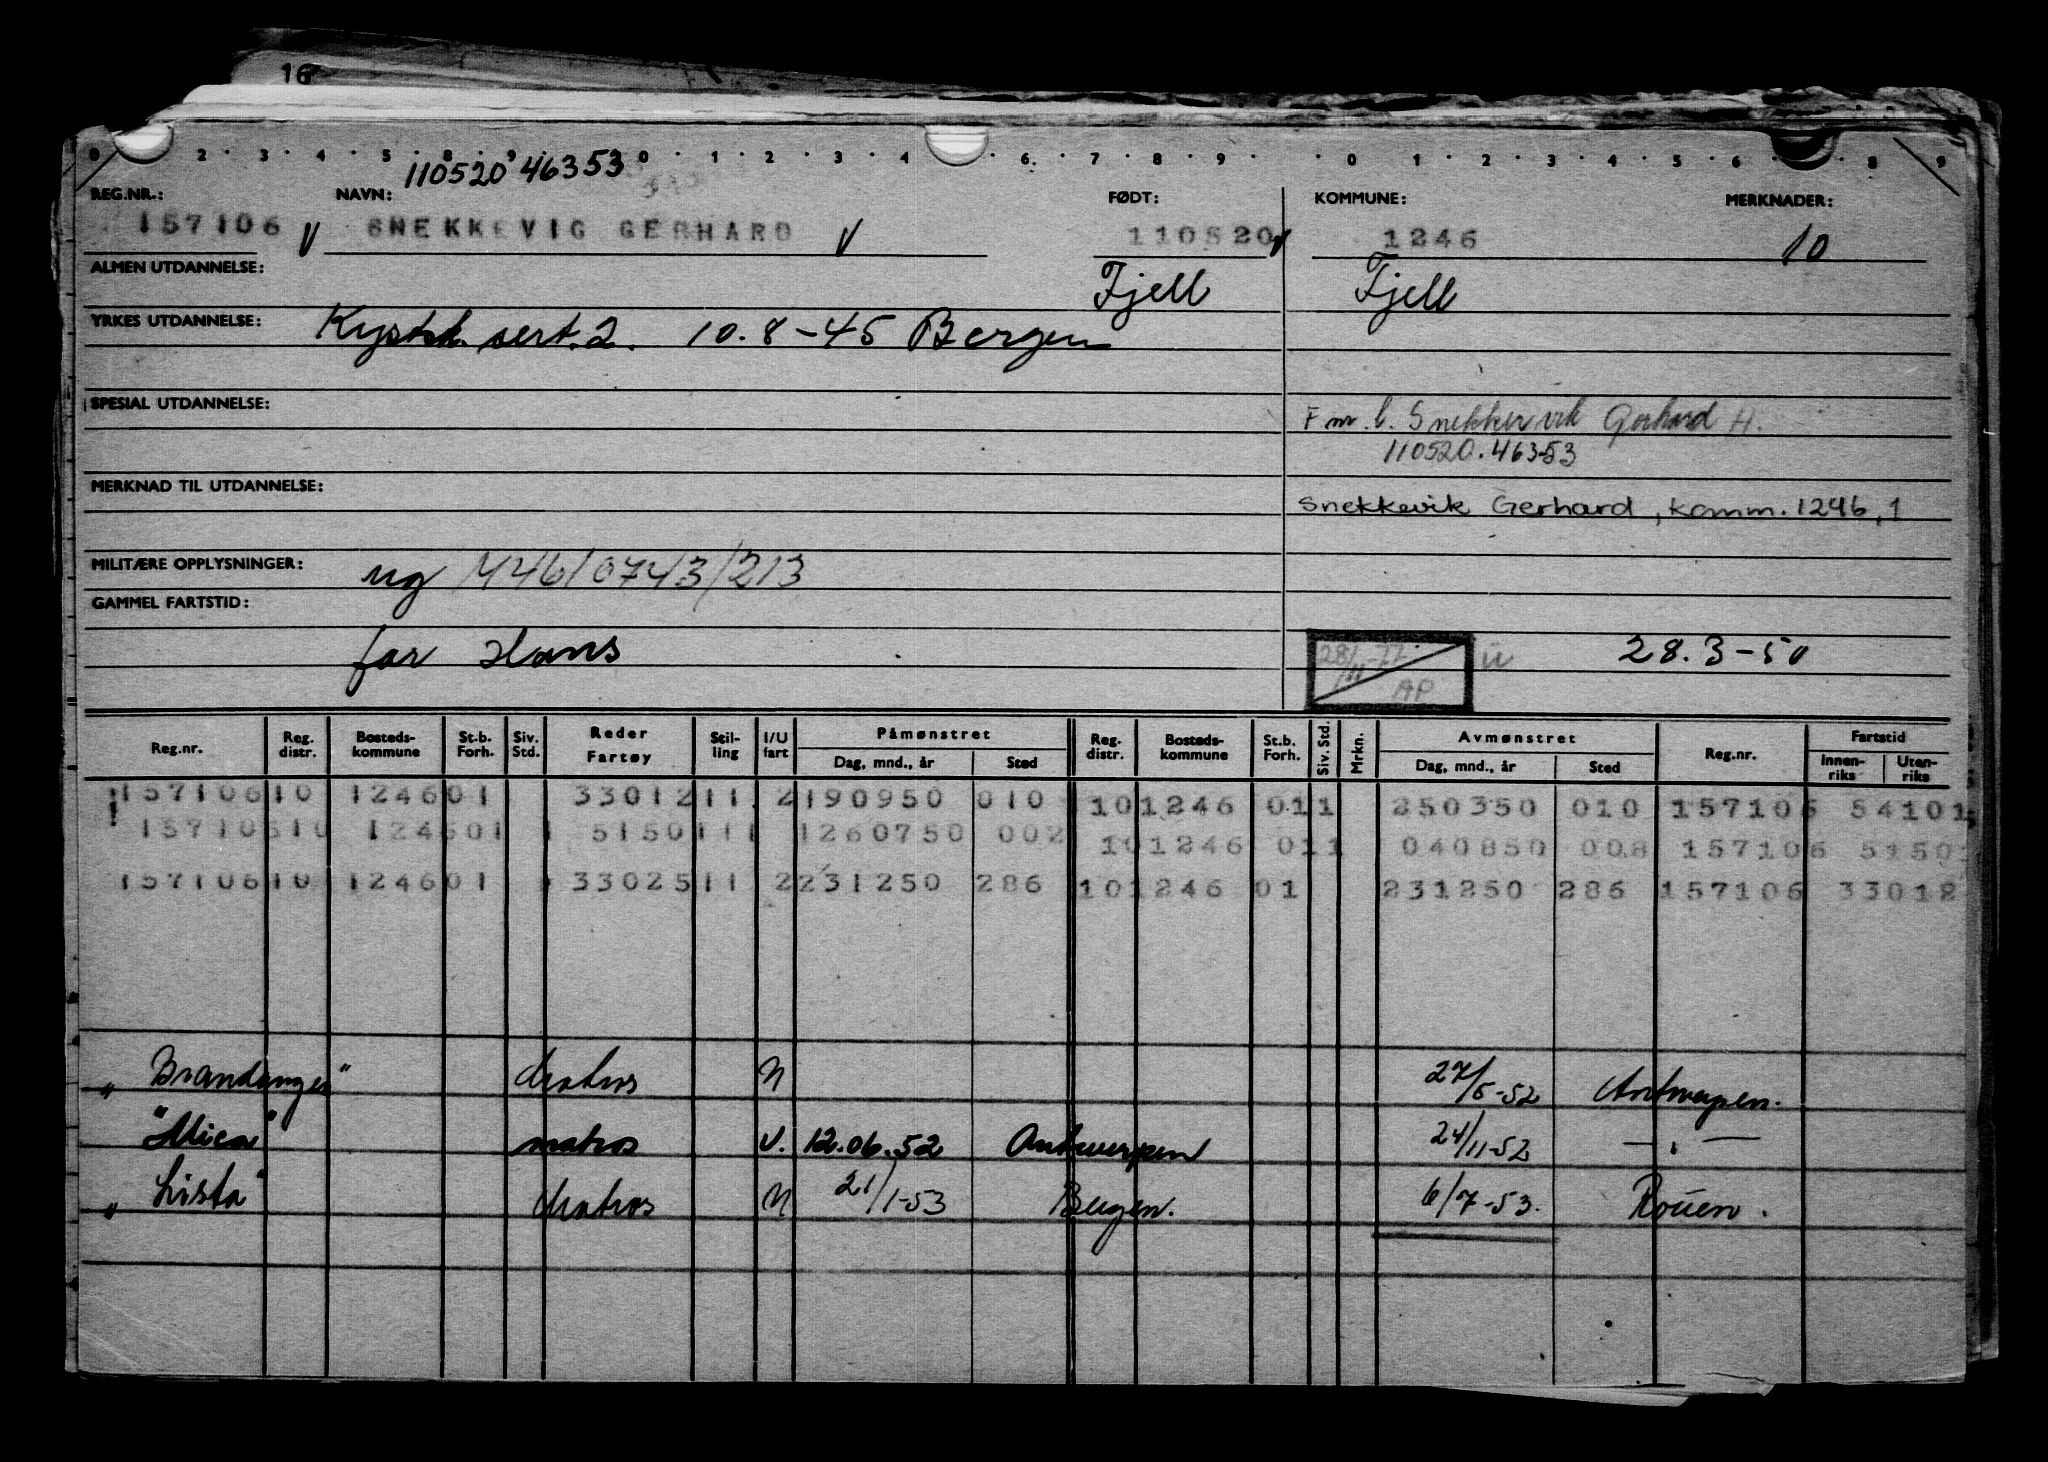 16
0 2 3 4 5 8 9 0 1 2 3 4 6 7 8 9 0 1 2 3 4 5 6 8 9
110520 46353
REG.NR.: NAVN: FØDT: KOMMUNE: MERKNADER:
157106 V SNEKKEVIG GERHARD V 110520 1246 10
ALMEN UTDANNELSE: Fjell Fjell
YRKES UTDANNELSE: sert. 2. 10.8-45 Bergen
SPESIAL UTDANNELSE:
Gerhard H.
110520.46353
MERKNAD TIL UTDANNELSE:
Snekkevik Gerhard, komm. 1246, 1
MILITÆRE OPPLYSNINGER: ug 446/0743/213
GAMMEL FARTSTID:
far Hans
28/11-77 AP u 28.3-50
Reg.nr. Reg. distr. Bosteds-kommune St.b. Forh. Siv. Std. Reder Fartøy Stil-ling I/U fart Påmønstret Dag, mnd., år Sted Reg. distr. Bosteds-kommune St.b. Forh. Siv. Std. Mrkn. Avmønstret Dag, mnd., år Sted Reg.nr. Fartstid Innen-riks Uten-riks
157106 10 1246 01 33012 11 2 190950 010 10 1246 01 1 250350 010 157106 54101
157106 10 1246 01 1 51501 11 1 260750 002 10 1246 01 1 040850 008 157106 5150
157106 10 1246 01 33025 11 2 231250 286 10 1246 01 231250 286 157106 33012
Matros 27/5-52 Antwerpen.
"Mica" matros U. 12.06.52 Antwerpen 24/11-52 — " —
"Lista" Matros 21/1-53 Bergen. 6/7-53. Rouen.